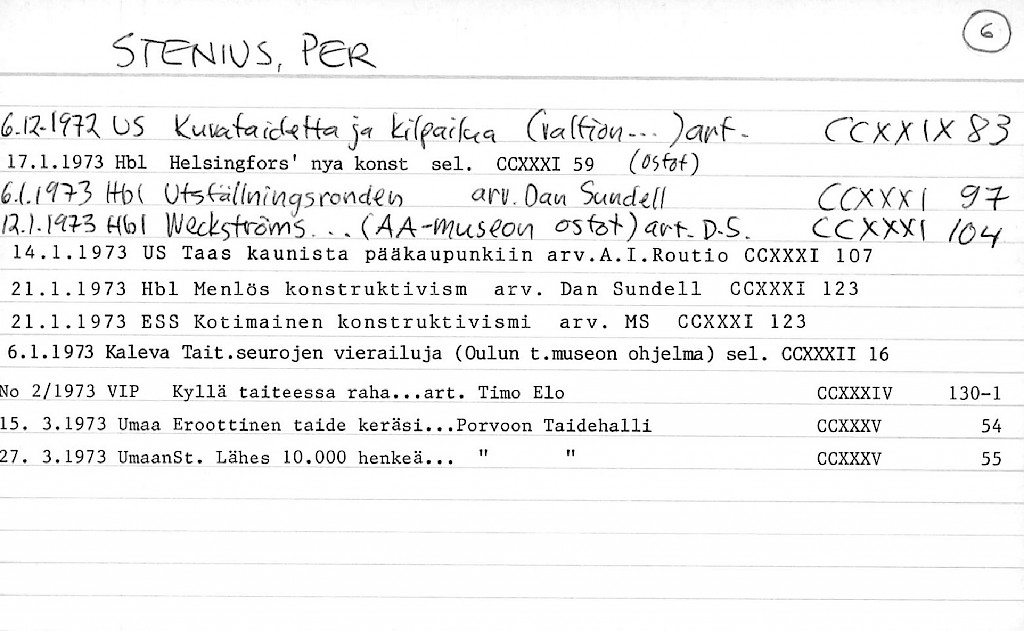 STENIUS, PER 6
6.12.1972 US Kuvataidetta ja kilpailua (valtion...) art. CCXXIX 83
17.1.1973 Hbl Helsingfors' nya konst sel. CCXXXI 59 (ostot)
6.1.1973 Hbl Utställningsronden arv. Dan Sundell CCXXXI 97
12.1.1973 Hbl Weckströms... (AA-museon ostot) art. D.S. CCXXXI 104
14.1.1973 US Taas kaunista pääkaupunkiin arv.A.I.Routio CCXXXI 107
21.1.1973 Hbl Menlös konstruktivism arv. Dan Sundell CCXXXI 123
21.1.1973 ESS Kotimainen konstruktivismi arv. MS CCXXXI 123
6.1.1973 Kaleva Tait.seurojen vierailuja (Oulun t.museon ohjelma) sel. CCXXXII 16
No 2/1973 VIP Kyllä taiteessa raha...art. Timo Elo CCXXXIV 130-1
15. 3.1973 Umaa Eroottinen taide keräsi...Porvoon Taidehalli CCXXXV 54
27. 3.1973 UmaanSt. Lähes 10.000 henkeä... " " CCXXXV 55